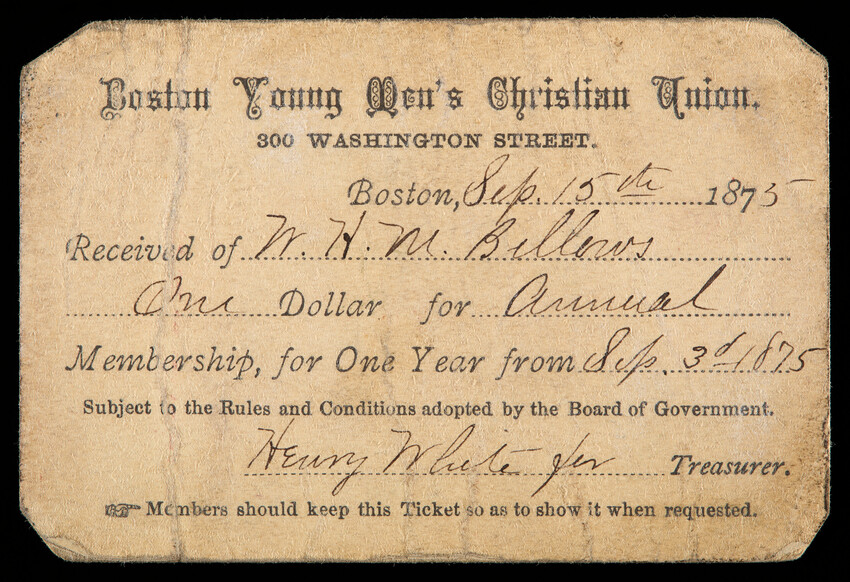 Boston Young Men's Christian Union.
300 WASHINGTON STREET.
Boston, Sep. 15th 1875
Received of W. H. M. Bellows
One Dollar for Annual
Membership, for One Year from Sep. 3d 1875
Subject to the Rules and Conditions adopted by the Board of Government.
Henry White for Treasurer.
☞ Members should keep this Ticket so as to show it when requested.